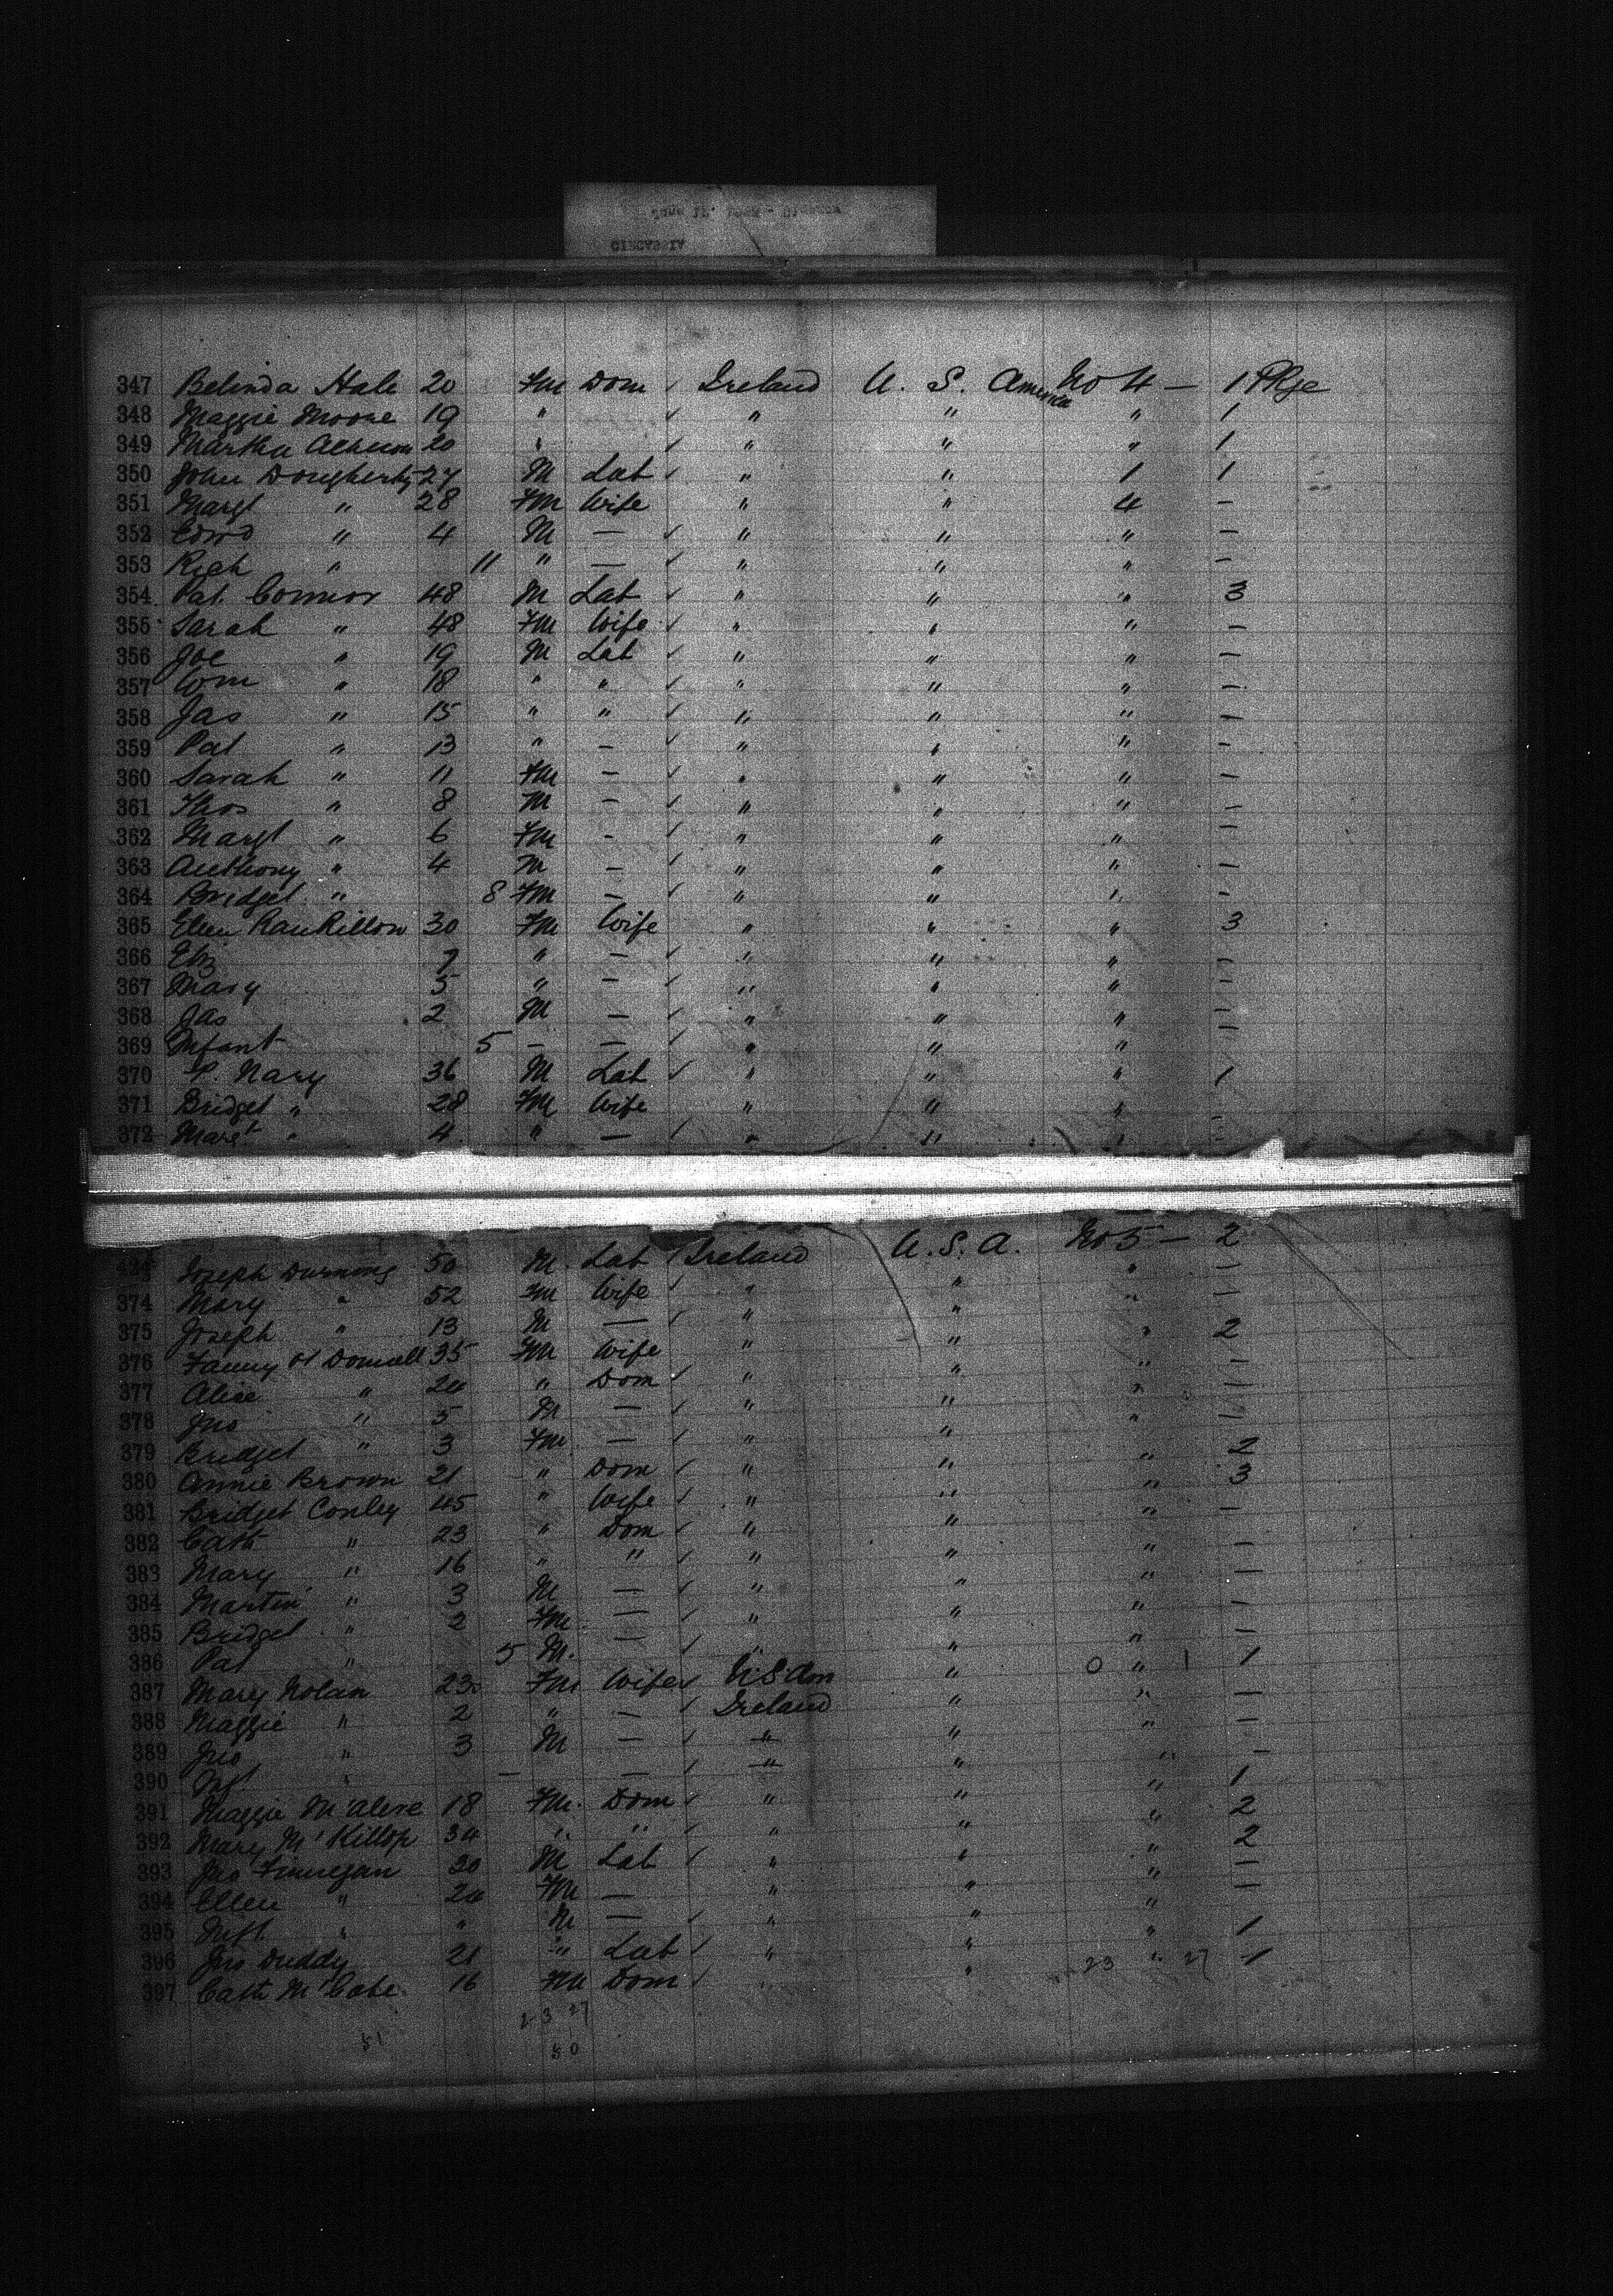 CIRCASSIA
347 Belinda Hale 20 Fm Dom ✓ Ireland U. S. America No 4 — 1 Pkge
348 Maggie Moore 19 " ✓ " " " 1
349 Martha 20 " ✓ " " " 1
350 John Dougherty 27 M Lab ✓ " " 1 1
351 Margt " 28 Fm Wife " " 4 —
352 Edwd " 4 M — ✓ " " " —
353 Rich " 11 " — ✓ " " " —
354 Pat. Connor 48 M Lab ✓ " " " 3
355 Sarah " 48 Fm Wife ✓ " " " —
356 Joe " 19 M Lab ✓ " " " —
357 Wm " 18 " " ✓ " " " —
358 Jas " 15 " " ✓ " " " —
359 Pat " 13 " — ✓ " " " —
360 Sarah " 11 Fm — ✓ " " " —
361 Thos " 8 M — ✓ " " " —
362 Margt " 6 Fm - ✓ " " " —
363 Anthony " 4 M — ✓ " " " —
364 Bridget " 8 Fm — ✓ " " " —
365 Ellen 30 Fm Wife " " " 3
366 Eliz 7 " — ✓ " " " —
367 Mary 5 " — ✓ " " " —
368 Jas 2 M — ✓ " " " —
369 Infant 5 — — ✓ " " " —
370 P. Nary 36 M Lab ✓ " " " 1
371 Bridget " 28 Fm Wife " " "
372 Margt " 4 " — ✓ " " " -
Joseph Durning 50 M. Lab Ireland U. S. A. No 5 — 2
374 Mary " 52 Fm Wife ✓ " " " —
375 Joseph " 13 M — ✓ " " " —
376 Fanny O'Donnell 35 Fm Wife " " " 2
377 Alice " 20 " Dom ✓ " " " —
378 Jno " 5 M — ✓ " " " —
379 Bridget " 3 Fm. — ✓ " " " —
380 Annie Brown 21 " Dom ✓ " " " 2
381 Bridget Conley 45 " Wife ✓ " " " 3
382 Cath " 23 " Dom ✓ " " " —
383 Mary " 16 " " ✓ " " " —
384 Martin " 3 M — ✓ " " " —
385 Bridget " 2 Fm. — ✓ " " " —
386 Pat " 5 M. ✓ " " " —
387 Mary Nolan 23 Fm Wife ✓ U. S. Am " 0 " 1 1
388 Maggie " 2 " — ✓ Ireland " " —
389 Jno " 3 M — ✓ " " " —
390 Inft " — — ✓ " " " —
391 Maggie McAleve 18 Fm. Dom ✓ " " " 1
392 Mary McKillop 34 " " ✓ " " " 2
393 Jno Finnegan 30 M Lab ✓ " " " 2
394 Ellen " 20 Fm — " " " —
395 Inft. " " M — ✓ " " " —
396 Jno Duddy 21 " Lab ✓ " " " 1
397 Cath McCabe. 16 Fm Dom ✓ " " 23 " 27 1
23 27
51 50